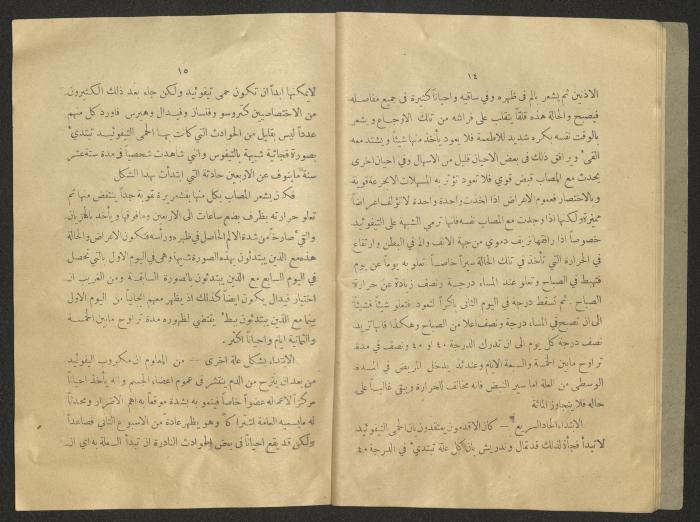 ١٤
الاذنين ثم يشعر بالم في ظهره وفي ساقيه واحياناً كثيرة في جميع مفاصله
فيصبح والحالة هذه قلقاً يتقلب على فراشه من تلك الاوجاع ويشعر
بالوقت نفسه بكره شديد للاطعمة فلا يعود يأخذ منها شيئاً ويشتد معه
القيء ويرافق ذلك في بعض الاحيان قليل من الاسهال وفي احيان اخرى
يحدث مع المصاب قبض قوي فلا تعود تؤثر به المسهلات الا بجرعة قوية
وبالاختصار فعموم الاعراض اذا اخذت واحدة واحدة لا تؤلف اعراضاً
مميزة ولكنها اذا وجدت مع المصاب نفسه فانها ترمي الشبهة على التيفوئيد
خصوصاً اذا رافقها نزيف دموي من جهة الانف والم في البطن وارتفاع
في الحرارة التي تأخذ في تلك الحالة سيراً خاصاً تعلو به يوماً عن يوم
فتهبط في الصباح وتعلو عند المساء درجة ونصف زيادة عن حرارة
الصباح. ثم تسقط درجة في اليوم الثاني باكراً لتعود فتعلو شيئاً فشيئاً
الى ان تصبح في المساء درجة ونصف اعلا من الصباح وهكذا فانها تزيد
نصف درجة كل يوم الى ان تدرك الدرجة ٤٠ او ٤٠ ونصف في مدة
تراوح ما بين الخمسة والسبعة الايام وعندئذ يدخل المريض في المدة
الوسطى من العلة اما سير النبض فانه مخالف للحرارة ويبقى غالباً على
حاله فلا يتجاوز المائة
الابتداء الحاد السريع — كان الاقدمون يعتقدون بان الحمى التيفوئيد
لا تبدأ فجأة لذلك قد قال وندرليش بان كل علة تبتديء في الدرجة ٤٠
١٥
لا يمكنها ابداً ان تكون حمى تيفوئيد ولكن جاء بعد ذلك الكثيرون
من الاختصاصيين كتروسو وفلسان وفيدال وهبرس فاورد كل منهم
عدداً ليس بقليل من الحوادث التي كانت بها الحمى التيفوئيد تبتديء
بصورة فجائية شبيهة بالتيفوس وانني شاهدت شخصياً في مدة ستة عشر
سنة ما ينوف عن الاربعين حادثة التي ابتدأت بهذا الشكل
فكان يشعر المصاب بكل منها بقشعريرة قوية جداً ينتفض منها ثم
تعلو حرارته بظرف بضع ساعات الى الاربعين وما فوقها ويأخذ بالهزيان
والقيء صارخاً من شدة الالم الحاصل في ظهره ورأسه فتكون الاعراض والحالة
هذه مع الذين يبتدئون بهذه الصورة شبيهاً وهي في اليوم الاول بالتي تحصل
في اليوم السابع مع الذين يبتدئون بالصورة السابقة ومن الغريب ان
اختبار فيدال يكون ايضاً كذلك اذ يظهر معهم ايجابياً من اليوم الاول
بينما مع الذين يبتدئون ببطء يقتضي لظهوره مدة تراوح ما بين الخمسة
والثمانية ايام واحياناً اكثر.
الابتداء بشكل علة اخرى — من المعلوم ان مكروب التيفوئيد
من بعد ان يمتزج مع الدم ينتشر في عموم اعضاء الجسم وانه يأخذ احياناً
مركزاً لاعماله عضواً خاصاً فينمو به بشدة موقعاً به اهم الاضرار ومحدثاً
له ما يسميه العامة اشتراكاً وهو يظهر عادة من الاسبوع الثاني فصاعداً
ولكن قد يقع احياناً في بعض الحوادث النادرة ان تبدأ العلة به اي ان